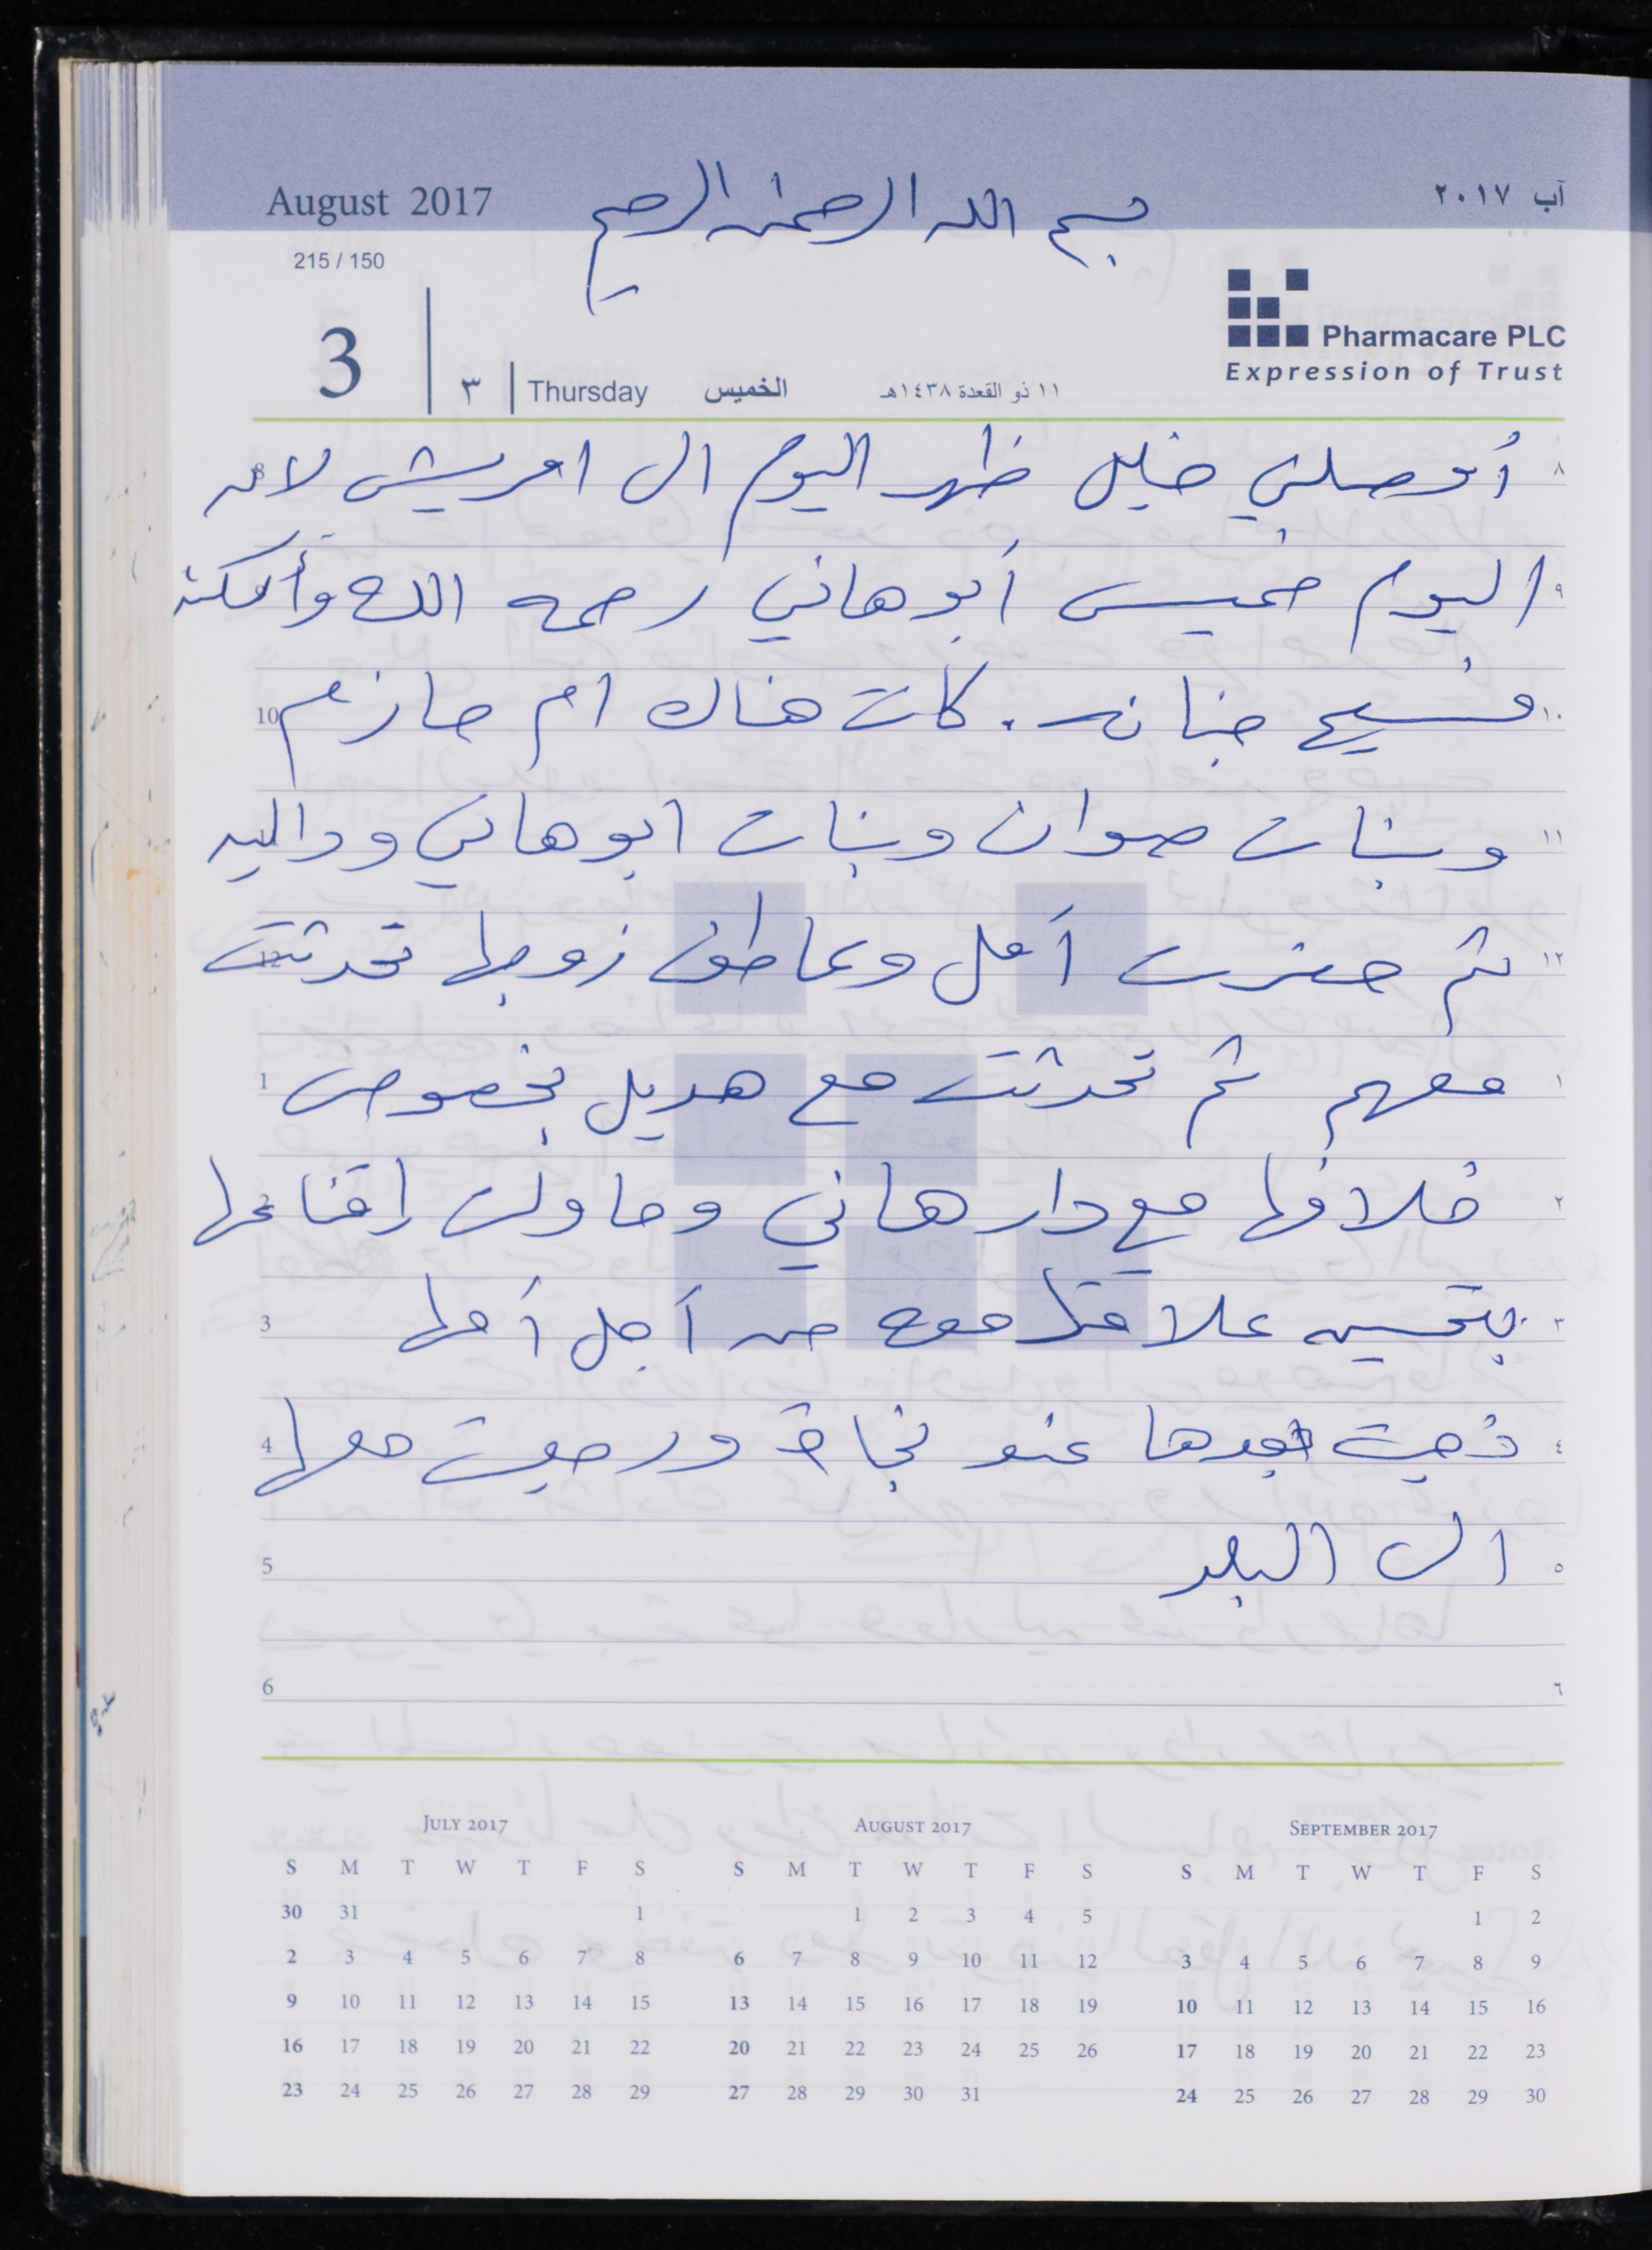 August 2017
بسم الله الرحمن الرحيم
آب ٢٠١٧
215 / 150
3
٣
Thursday
الخميس
١١ ذو القعدة ١٤٣٨هـ
Pharmacare PLC
Expression of Trust
٨ أوصلني خليل ظهر اليوم الى امريش لانه
٩ اليوم خميس أبو هاني رحمه الله وأسكنه
10 فسيح جنانه . كانت هناك ام حازم ١٠
١١ وبنات صوان وبنات ابو هاني وداليه
12 ثم حضرت أمل وعاطف زوجها تحدثت ١٢
1 معهم ثم تحدثت مع هديل بخصوص ١
2 خلافها مع دار هاني وحاولت إقناعها ٢
3 بتحسين علاقتها معه من أجل أمها ٣
4 ذهبت بعدها عند نجاة ورجعت معها ٤
5 الى البلد ٥
6 ٦
JULY 2017
S M T W T F S
30 31 1
2 3 4 5 6 7 8
9 10 11 12 13 14 15
16 17 18 19 20 21 22
23 24 25 26 27 28 29
AUGUST 2017
S M T W T F S
1 2 3 4 5
6 7 8 9 10 11 12
13 14 15 16 17 18 19
20 21 22 23 24 25 26
27 28 29 30 31
SEPTEMBER 2017
S M T W T F S
1 2
3 4 5 6 7 8 9
10 11 12 13 14 15 16
17 18 19 20 21 22 23
24 25 26 27 28 29 30